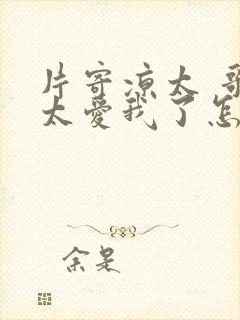 片寄凉太 哥
太爱我了怎
余是